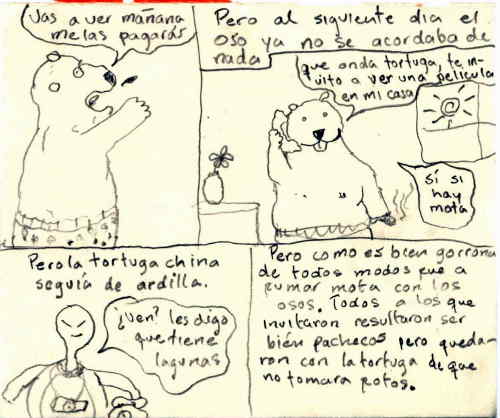 Vas a ver mañana
me las pagarás
Pero al siguiente dia el
oso ya no se acordaba de
nada
que onda tortuga, te in-
vito a ver una pelicula
en mi casa
sí si
hay
mota
Pero la tortuga china
seguía de ardilla.
¿Ven? les digo
que tiene
lagunas
Pero como es bien gorrona
de todos modos fue a
fumar mota con los
osos. Todos a los que
invitaron resultaron ser
bien pachecos pero queda-
ron con la tortuga de que
no tomara fotos.